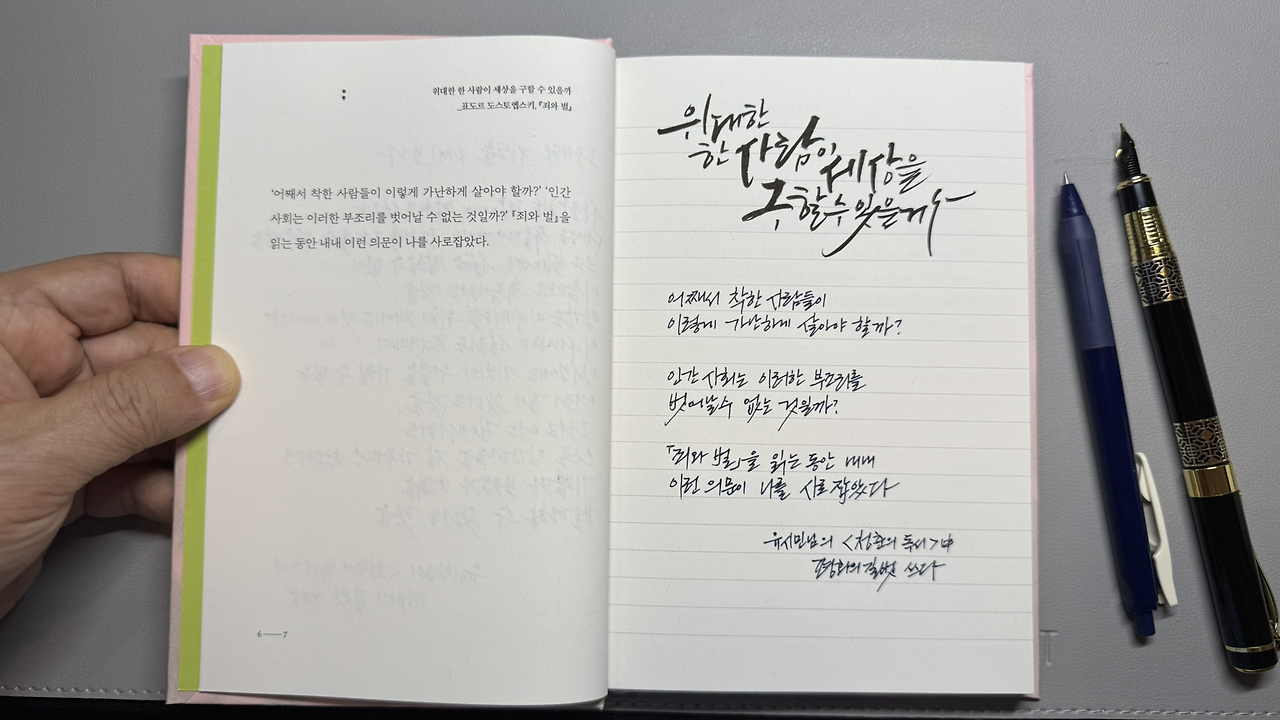 위대한 한 사람이 세상을 구할 수 있을까
_표도르 도스토옙스키, 『죄와 벌』
‘어째서 착한 사람들이 이렇게 가난하게 살아야 할까?’ ‘인간
사회는 이러한 부조리를 벗어날 수 없는 것일까?’ 『죄와 벌』을
읽는 동안 내내 이런 의문이 나를 사로잡았다.
6 — 7
위대한
한 사람이 세상을
구할 수 있을까
어째서 착한 사람들이
이렇게 가난하게 살아야 할까?
인간 사회는 이러한 부조리를
벗어날 수 없는 것일까?
『죄와 벌』을 읽는 동안 내내
이런 의문이 나를 사로잡았다
유시민님의 <청춘의 독서> 中
평화의길벗 쓰다